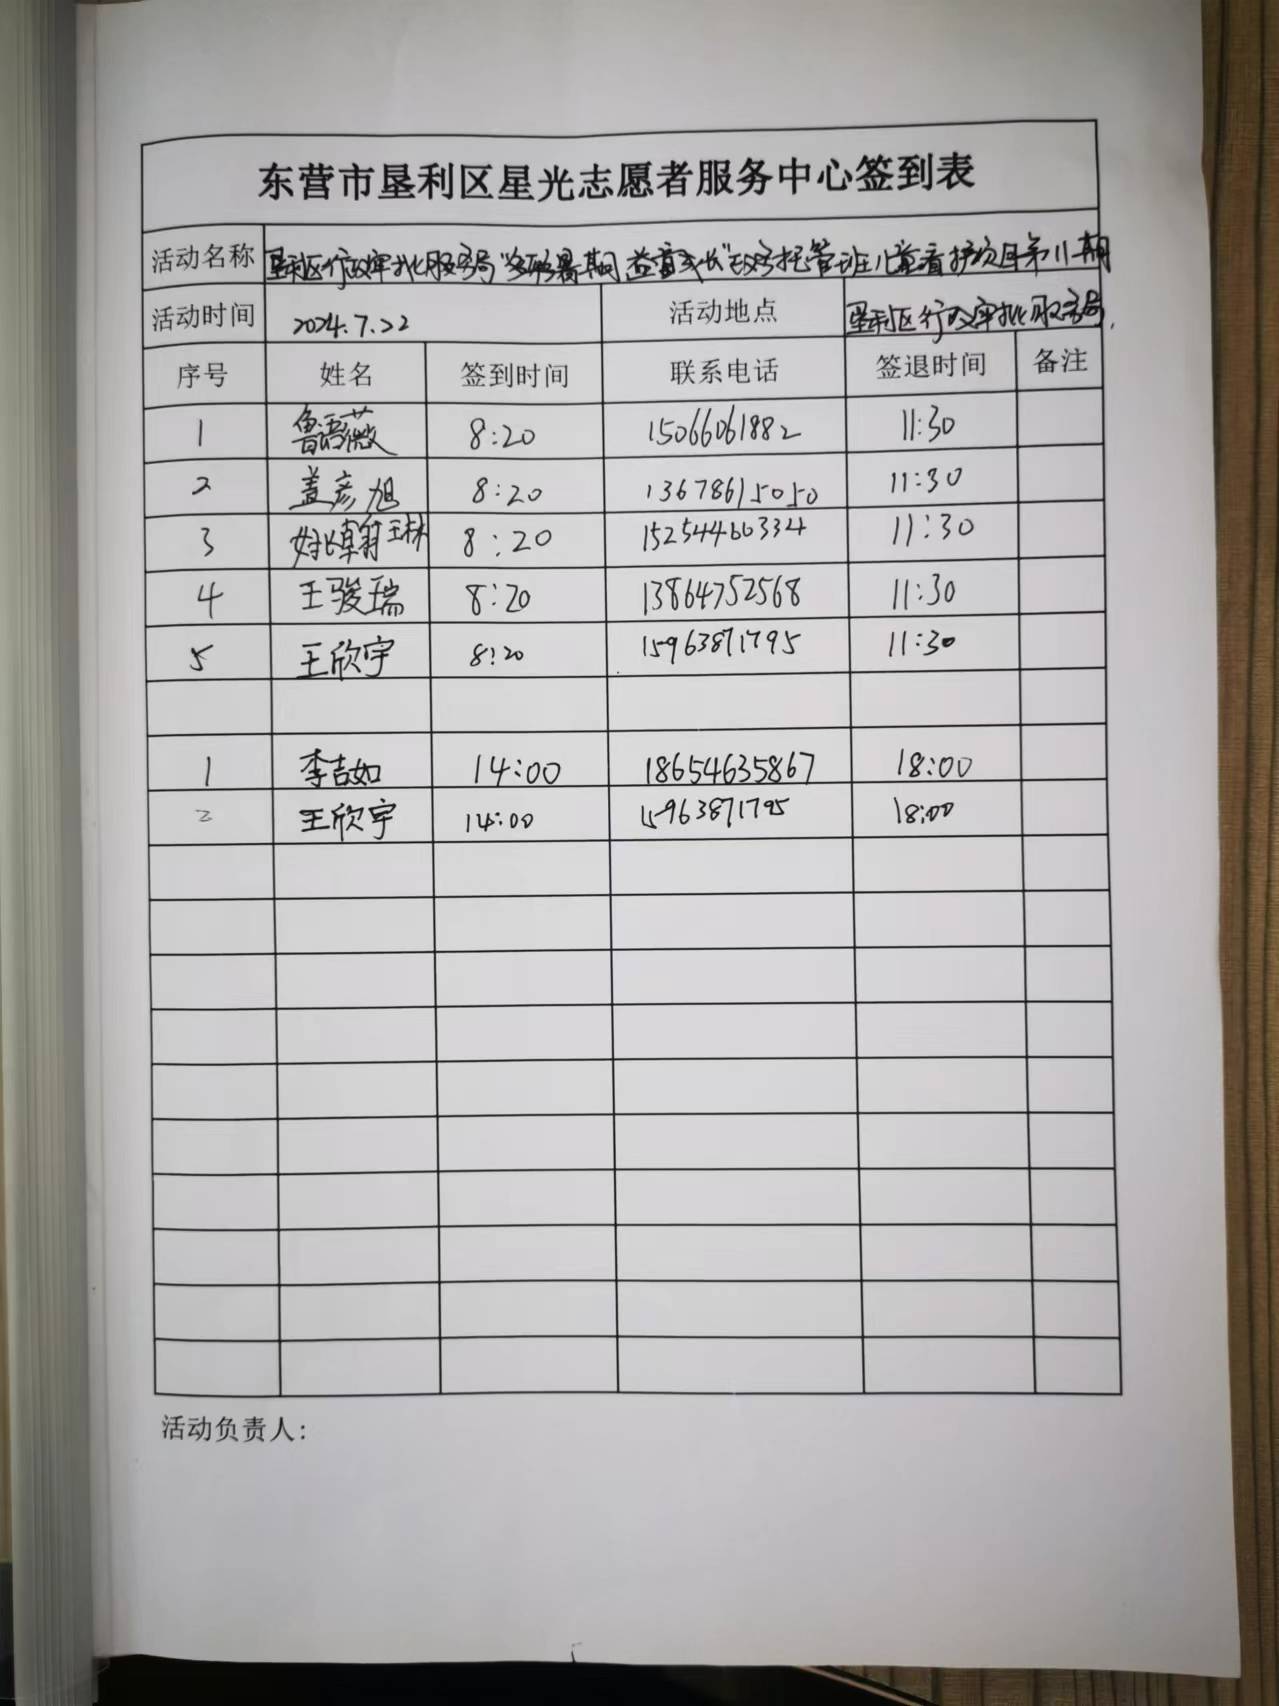 东营市垦利区星光志愿者服务中心签到表
活动名称 垦利区行政审批服务局“多彩暑期 益童成长”政务托管班儿童看护项目第11期
活动时间 2024.7.22 活动地点 垦利区行政审批服务局
序号 姓名 签到时间 联系电话 签退时间 备注
1 鲁语薇 8:20 15066061882 11:30
2 盖彦旭 8:20 13678615050 11:30
3 8:20 15254460334 11:30
4 王骏瑞 8:20 13864752568 11:30
5 王欣宇 8:20 15963871795 11:30
1 李吉如 14:00 18654635867 18:00
2 王欣宇 14:00 15963871795 18:00
活动负责人: